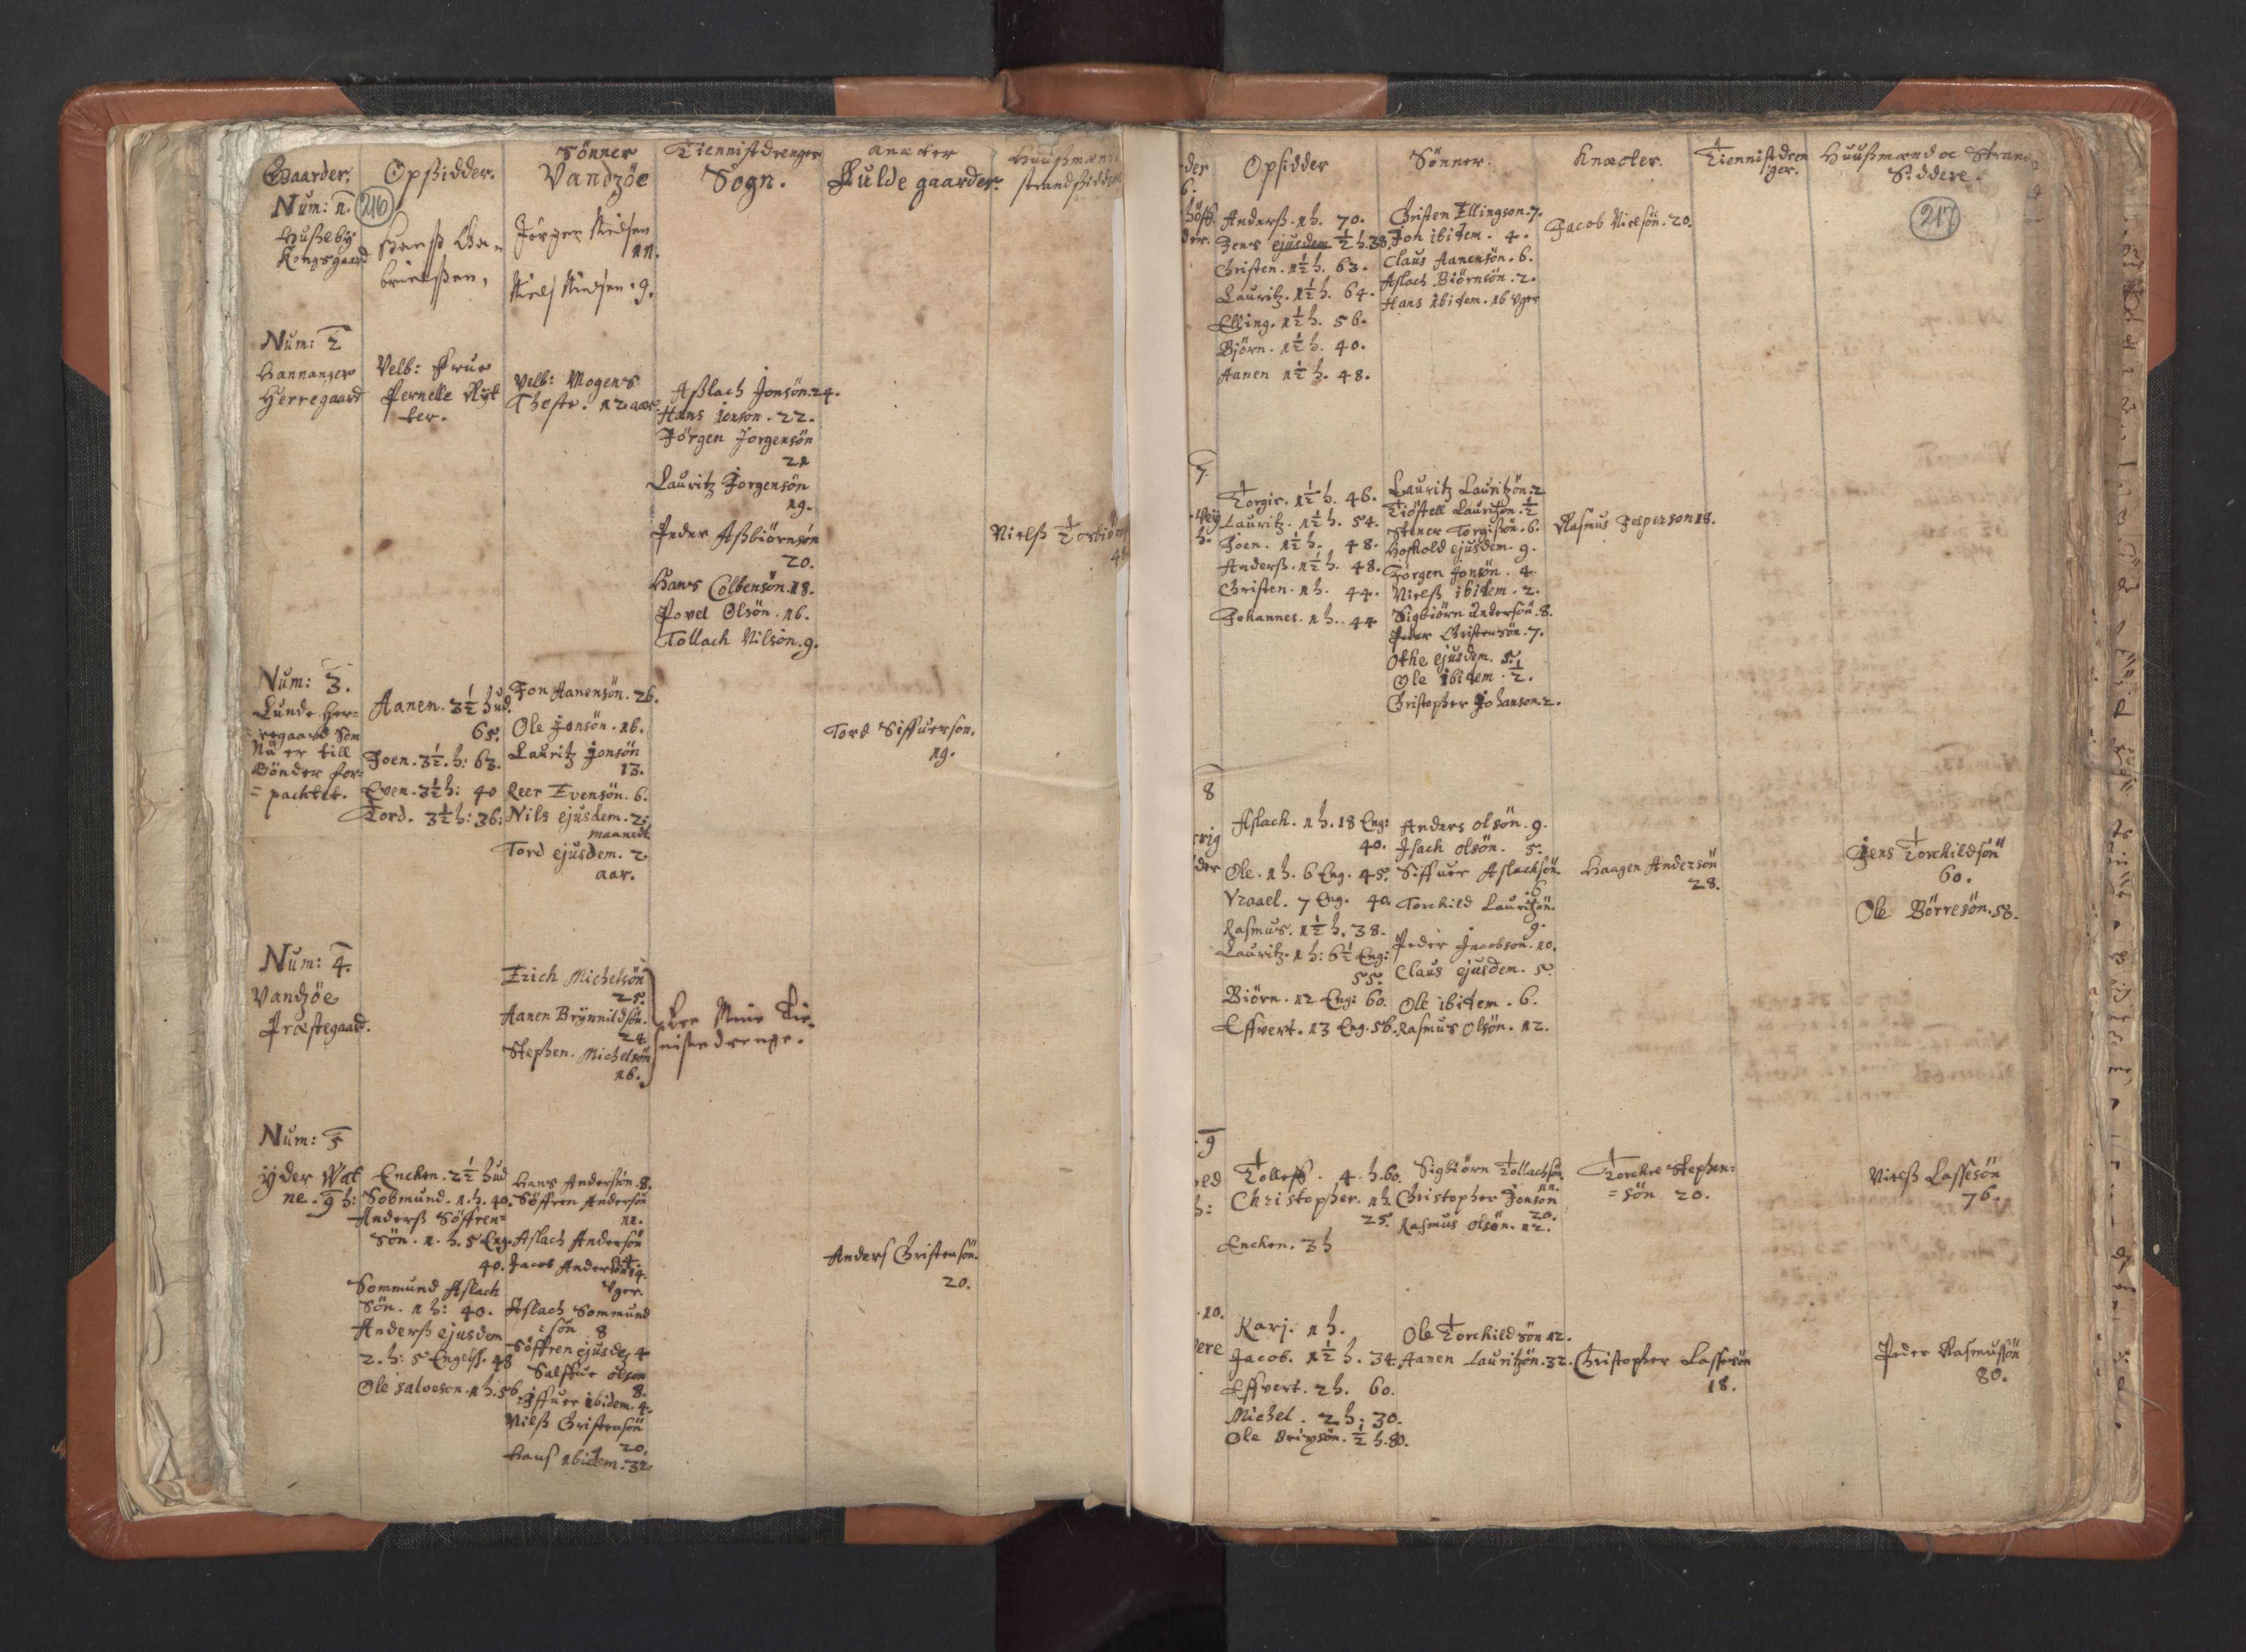 Gaarder. Opsidder. Sönner Tiennistdrenger Knecter Huußmænd
Vandzöe Sogn. Fulde gaarder. strandsidder
Num: 1. 216
Hußeby
Kongsgaard
Hanß Ga-
brielßen,
Jörgen Nielsen
11.
Niels Nielsen. 9.
Num: 2
Hannanger
Herregaard
Velb: Frue
Pernelle Ryt
ter.
Velb: Mogens
Theste. 12 aar.
Aßlach Jonsön. 24.
Hans Jonson. 22.
Jörgen Jorgensön
21
Lauritz Jorgensön
19.
Peder Aßbiörnsön
20.
Hans Colbensön. 18.
Povel Olsön. 16.
Tollach Nilsön. 9.
Nielß Torbiörn
Num: 3.
Lunde Her-
regaard Som
Nu er till
Bönder for-
= packtet.
Aanen. 3½ hud.
65.
Joen. 3½. h: 63.
Even. 3½ h: 40
Tord. 3½ h: 36:
Jon Aanensön. 26.
Ole Jonsön. 16.
Lauritz Jonsön
13.
Reer Evensön. 6.
Nils ejusdem. 2.
maaneder
Tord ejusdem. 2
aar.
Tord Siffuerson.
19.
Num: 4.
Vandzöe
Præstegaard.
Erich Michelsön
25.
Aanen Brynnildsön.
24.
Stephen. Michelsön
16.
Ere Mine Tie-
nistedrenge.
Num: 5
yder Wat
ne. 9 h:
Encken. 2½ hud
Sobmund. 1. h. 40.
Anderß Söffren=
Sön. 1. h. 5 Eng.
40.
Sommund Aslach
Sön. 1 h: 40.
Anderß ejusdem
2. h: 5 Engelß. 48
Ole Salveson. 1 h. 56.
Hans Andersön. 8.
Söffren Andersön
11.
Aslach Andersön
Jacob Andersön 14.
Vger.
Aslach Sommund
: sön 8
Söffren ejusde. 4
Salffue olson
8.
Siffuer ibidem. 4.
Nielß Christensön
20.
Hans ibidem. 32.
Anders Christensön.
20.
Opsidder Sönner. Knecter. Tiennistdren
ger. Huußmænd oc Strand
Siddere.
217
6.
Anderß. 1 h. 70.
Jens ejusdem ½ h. 38.
Christen. 1½ h. 63.
Lauritz. 1½ h. 64.
Elling. 1½ h. 56.
Björn. 1½ h. 40.
Aanen 1½ h. 48.
Christen Ellingson. 7.
Jon ibidem. 4.
Claus Aanensön. 6.
Aslach Biörnsön. 2.
Hans ibidem. 16 Vger
Jacob Nielsön. 20.
7.
Torgir. 1½ h. 46.
Lauritz. 1½ h. 54.
Joen. 1½ h. 48.
Anderß. 1½ h. 48.
Christen. 1 h. 44.
Johannes. 1 h. 44
Lauritz Lauritzön. 2
Tiöstell Lauritzön. ½
Stener Torgißön. 6.
Hoskold ejusdem. 9.
Jörgen Jonsön. 4.
Nielß ibidem. 2.
Sigbiörn Andersön. 8.
Peder Christensön. 7.
Othe ejusdem. 5.
Ole ibidem. ½.
Christopher Johanson. 2.
Rasmus Jesperson 18.
8
Aslach. 1 h. 18 Eng:
40.
Ole. 1 h. 6 Eng. 45.
Vraael. 7 Eng. 40.
Rasmus. 1½ h. 38.
Lauritz. 1 h: 6½ Eng:
55.
Biörn. 12 Eng: 60.
Effvert. 13 Eng. 56.
Anders olsön. 9.
Isach olsön. 5.
Siffuer Aslachsön
.6
Torchild Lauritzön.
9.
Peder Jacobson. 10.
Claus ejusdem. 5.
Ole ibidem. 6.
Rasmus Olsön. 12.
Haagen Andersön
28.
Jens Torchildsön
60.
Ole Börresön. 58.
9
Tolleff. 4. h. 60.
Christopher. 1 h
25.
Encken. 3 h
Sigbiörn Tollachsön
11.
Christopher Jonson
20.
Rasmus olsön. 12.
Torckel Stephen=
= sön 20.
Nielß Lassesön
76.
10.
Karj. 1 h.
Jacob. 1½ h. 34.
Effvert. 2 h. 60.
Michel. 2 h: 30.
Ole ½ h. 80.
Ole Torchildsön 12.
Aanen Lauritzön. 32.
Christopher Lassesön
18.
Peder Rasmussön
80.